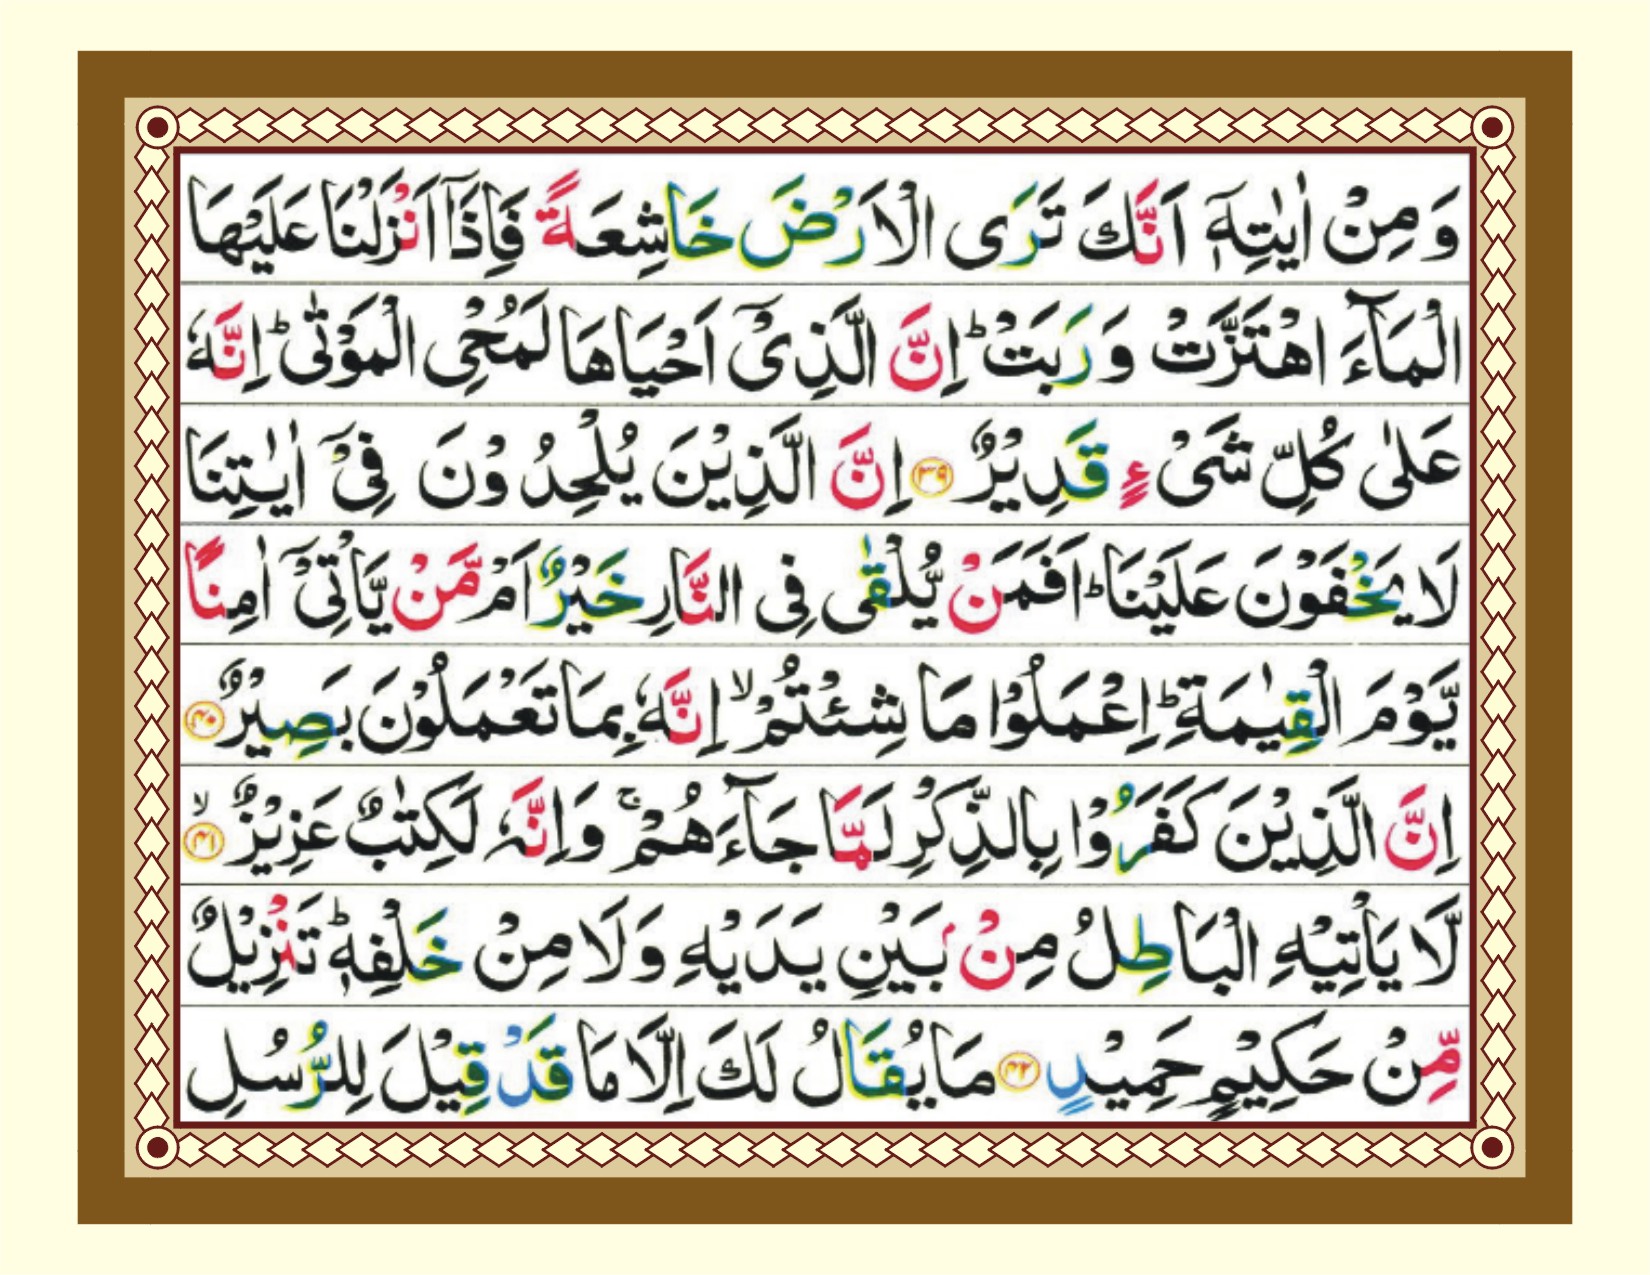 وَمِنْ اٰیٰتِهٖۤ اَنَّكَ تَرَی الْاَرْضَ خَاشِعَةً فَاِذَاۤ اَنْزَلْنَا عَلَیْهَا
الْمَآءَ اهْتَزَّتْ وَ رَبَتْ ؕ اِنَّ الَّذِیْۤ اَحْیَاهَا لَمُحْیِ الْمَوْتٰی ؕ اِنَّهٗ
عَلٰی كُلِّ شَیْءٍ قَدِیْرٌ ۝۳۹ اِنَّ الَّذِیْنَ یُلْحِدُوْنَ فِیْۤ اٰیٰتِنَا
لَا یَخْفَوْنَ عَلَیْنَا ؕ اَفَمَنْ یُّلْقٰی فِی النَّارِ خَیْرٌ اَمْ مَّنْ یَّاْتِیْۤ اٰمِنًا
یَّوْمَ الْقِیٰمَةِ ؕ اِعْمَلُوْا مَا شِئْتُمْ ۙ اِنَّهٗ بِمَا تَعْمَلُوْنَ بَصِیْرٌ ۝۴۰
اِنَّ الَّذِیْنَ كَفَرُوْا بِالذِّكْرِ لَمَّا جَآءَهُمْ ۚ وَاِنَّهٗ لَكِتٰبٌ عَزِیْزٌ ۙ۝۴۱
لَّا یَاْتِیْهِ الْبَاطِلُ مِنْۢ بَیْنِ یَدَیْهِ وَلَا مِنْ خَلْفِهٖ ؕ تَنْزِیْلٌ
مِّنْ حَكِیْمٍ حَمِیْدٍ ۝۴۲ مَا یُقَالُ لَكَ اِلَّا مَا قَدْ قِیْلَ لِلرُّسُلِ